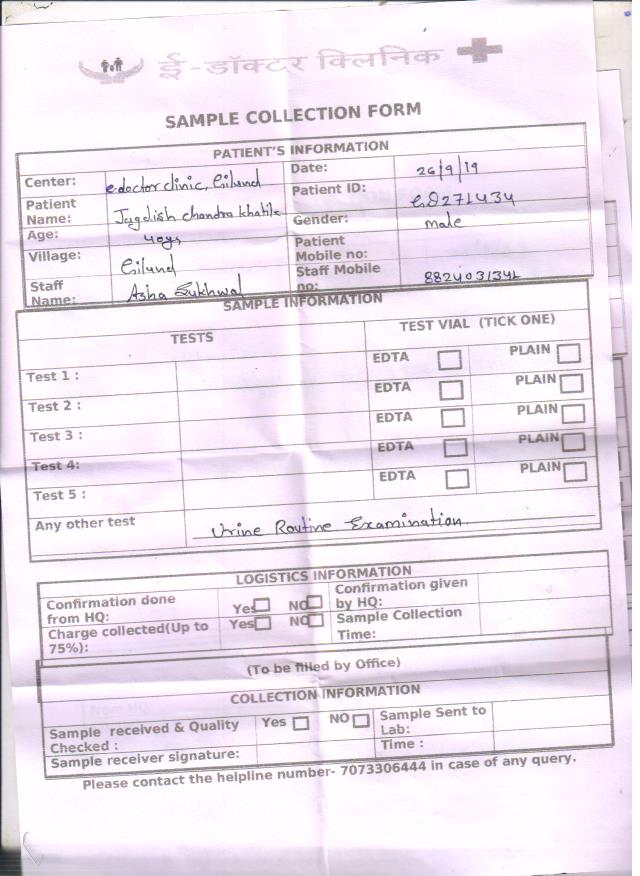 ई-डॉक्टर क्लिनिक
SAMPLE COLLECTION FORM
PATIENT'S INFORMATION
Center: e-doctor clinic, Gilund Date: 26/9/19
Patient Name: Jagdish chandra khatik Patient ID: GD271434
Age: 40ys Gender: male
Village: Gilund Patient Mobile no:
Staff Name: Asha Sukhwal Staff Mobile no:
SAMPLE INFORMATION
TESTS TEST VIAL (TICK ONE)
Test 1 : EDTA PLAIN
Test 2 : EDTA PLAIN
Test 3 : EDTA PLAIN
Test 4: EDTA PLAIN
Test 5 : EDTA PLAIN
Any other test Urine Routine Examination
LOGISTICS INFORMATION
Confirmation done from HQ: Yes NO Confirmation given by HQ:
Charge collected(Up to 75%): Yes NO Sample Collection Time:
(To be filled by Office)
COLLECTION INFORMATION
Sample received & Quality Checked : Yes NO Sample Sent to Lab:
Sample receiver signature: Time :
Please contact the helpline number- 7073306444 in case of any query.